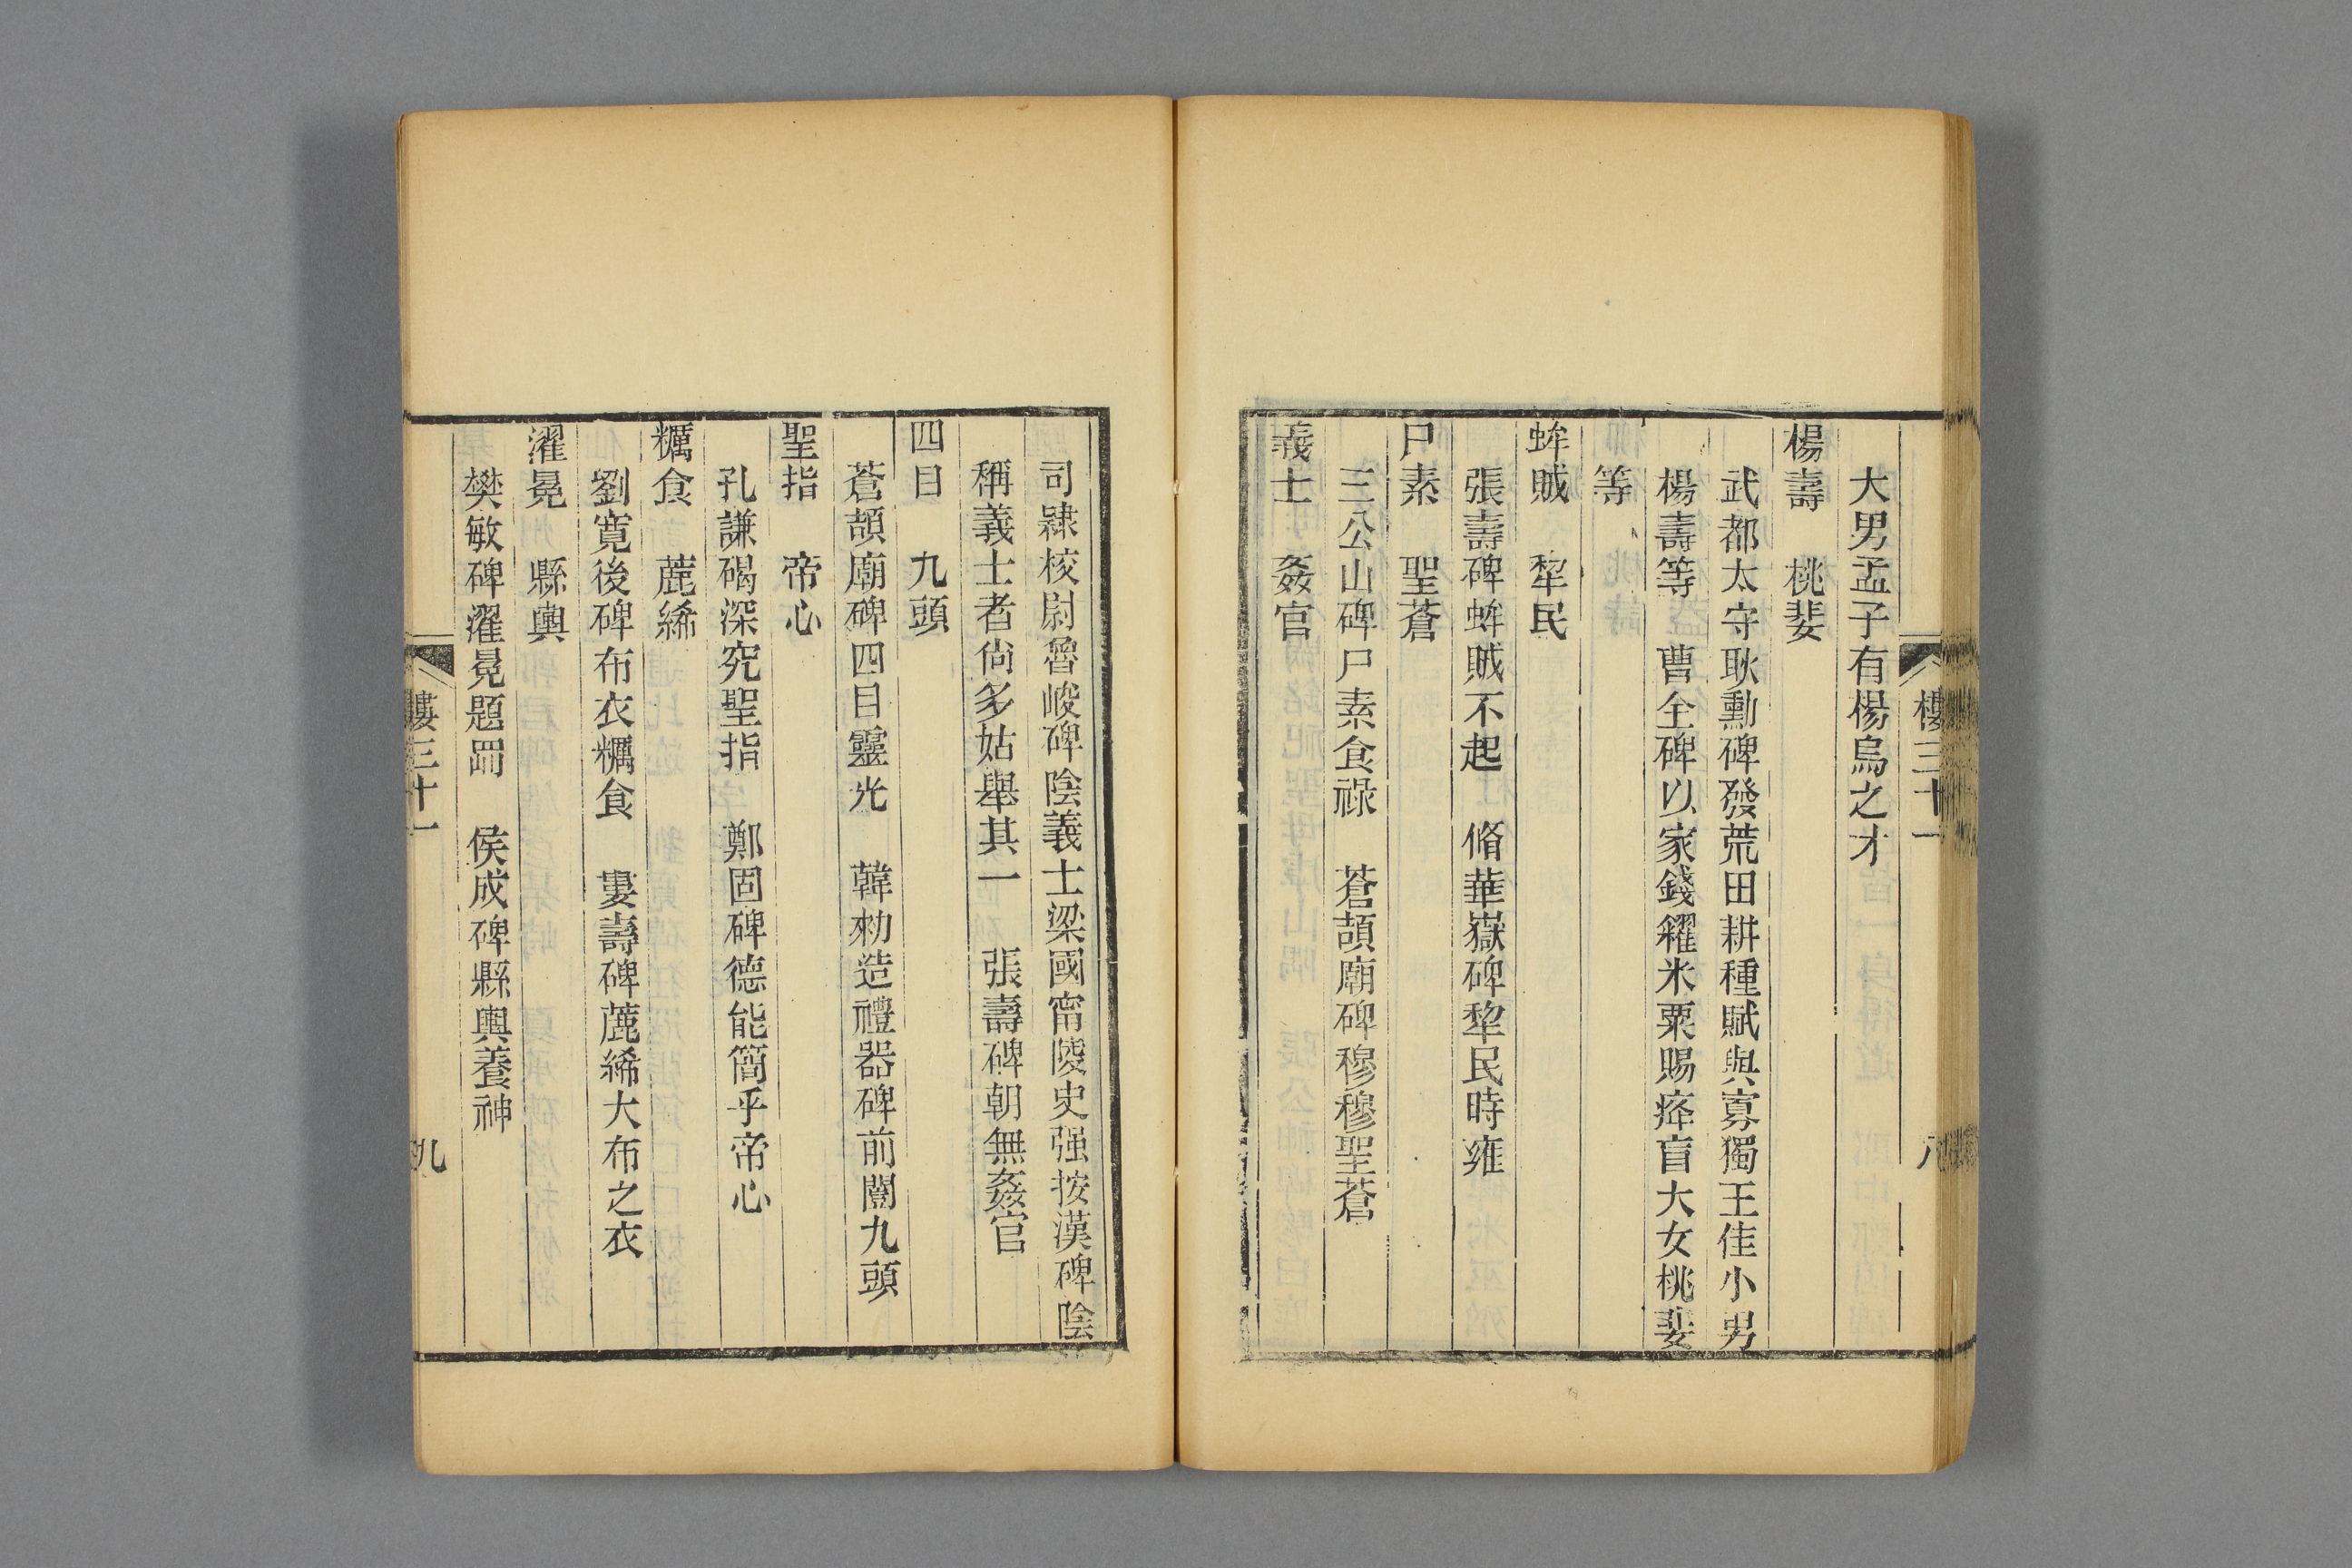 樓三十一
八
大男孟子有楊烏之才
楊壽　桃婓
武都太守耿勳碑發荒田耕種賦與寡獨王佳小男
楊壽等　曹全碑以家錢糴米粟賜癃盲大女桃婓
等
蛑賊　犂民
張壽碑蛑賊不起　脩華嶽碑犂民時雍
尸素　聖蒼
三公山碑尸素食祿　蒼頡廟碑穆穆聖蒼
義士　姦官
司隷校尉魯峻碑陰義士梁國甯陵史强按漢碑陰
稱義士者尙多姑舉其一　張壽碑朝無姦官
四目　九頭
蒼頡廟碑四目靈光　韓勑造禮器碑前闓九頭
聖指　帝心
孔謙碣深究聖指　鄭固碑德能簡乎帝心
糲食　蔍絺
劉寬後碑布衣糲食　婁壽碑蔍絺大布之衣
濯冕　縣輿
樊敏碑濯冕題罰　侯成碑縣輿養神
樓三十一
九